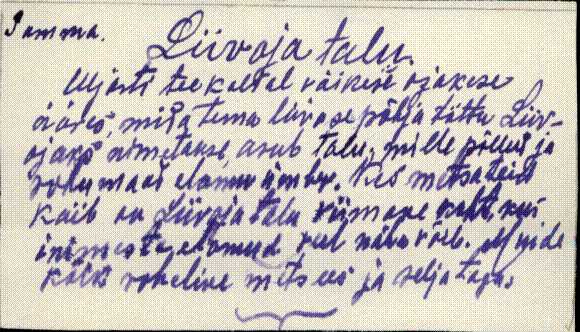 Samma.
Liivoja talu.
Uljasti teekaldal väikese ojakese
ääres, mida tema liivase põhja tõttu Liiv-
ojaks nimetakse, asub talu, mille põllud ja
rohumaad elamu ümber. Kes metsateid
käib on Liivoja talu viimane koht, kus
inimestegi elamud veel näha võib. Muide
kõik roheline mets ees ja selja taga.